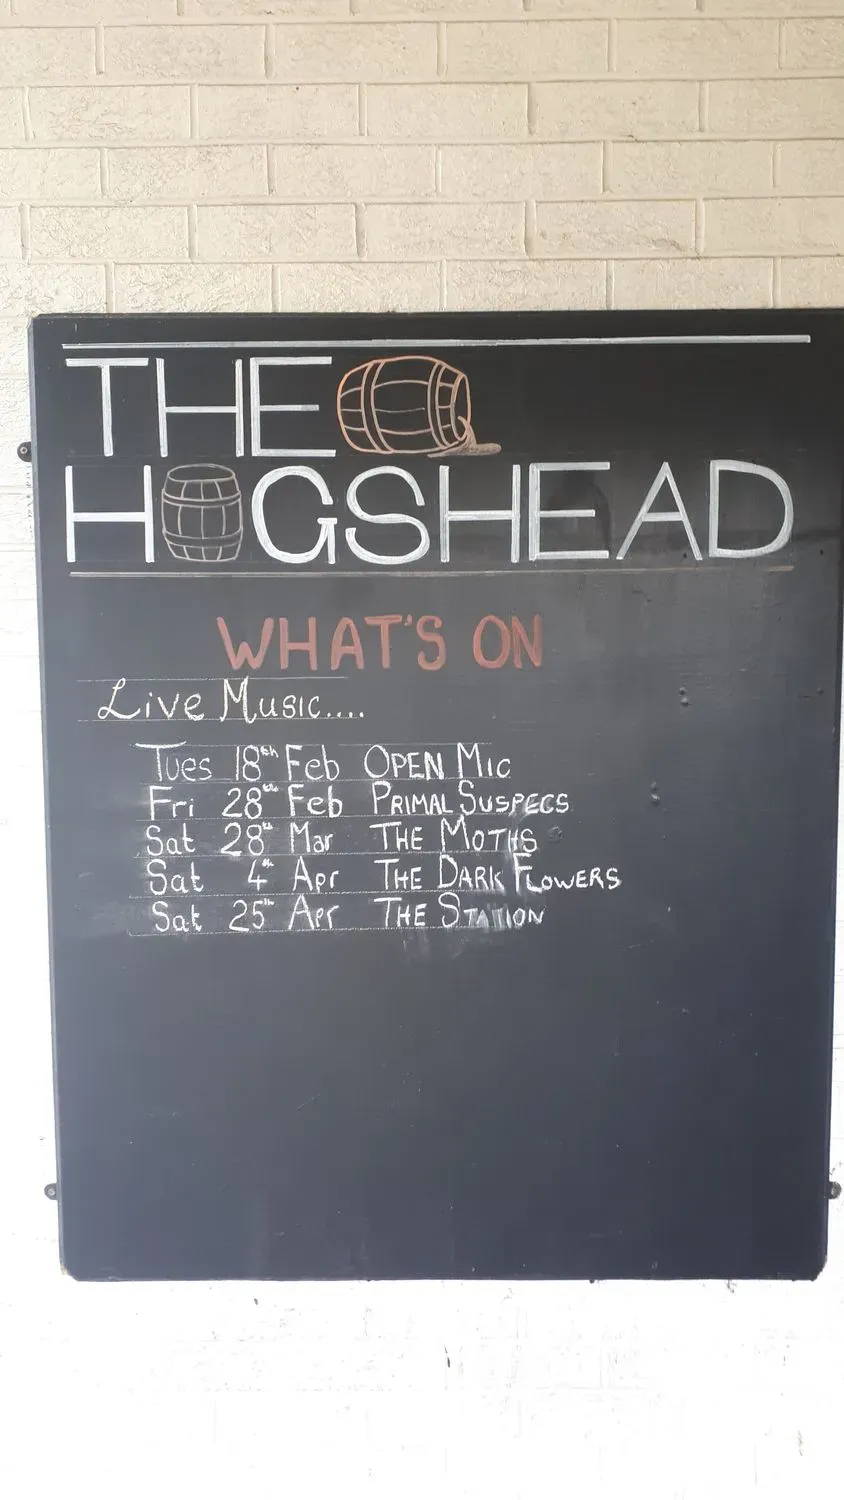 THE
HOGSHEAD
WHAT'S ON
Live Music....
Tues 18th Feb OPEN MIC
Fri 28th Feb PRIMAL SUSPECS
Sat 28th Mar THE MOTHS
Sat 4th Apr THE DARK FLOWERS
Sat 25th Apr THE STATION